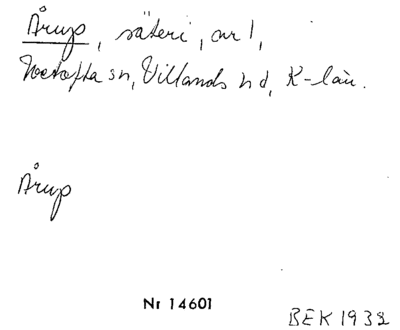 Årup, säteri, nr 1,
Ivetofta sn, Villands hd, K-län.
Årup
Nr 14601
BEK 1932